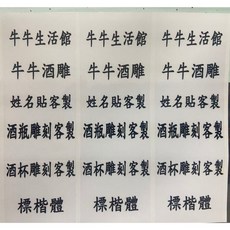 牛牛生活館 牛牛生活館 牛牛生活館
牛牛酒雕 牛牛酒雕 牛牛酒雕
姓名貼客製 姓名貼客製 姓名貼客製
酒瓶雕刻客製 酒瓶雕刻客製 酒瓶雕刻客製
酒杯雕刻客製 酒杯雕刻客製 酒杯雕刻客製
標楷體 標楷體 標楷體